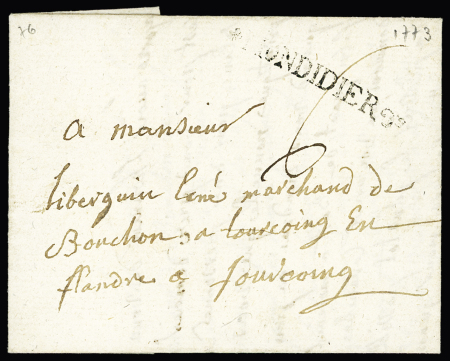 76
1773
MONDIDIER
6
a monsieur
liberquin l'ené marchand de
Bouchon a tourcoing En
flandre a tourcoing